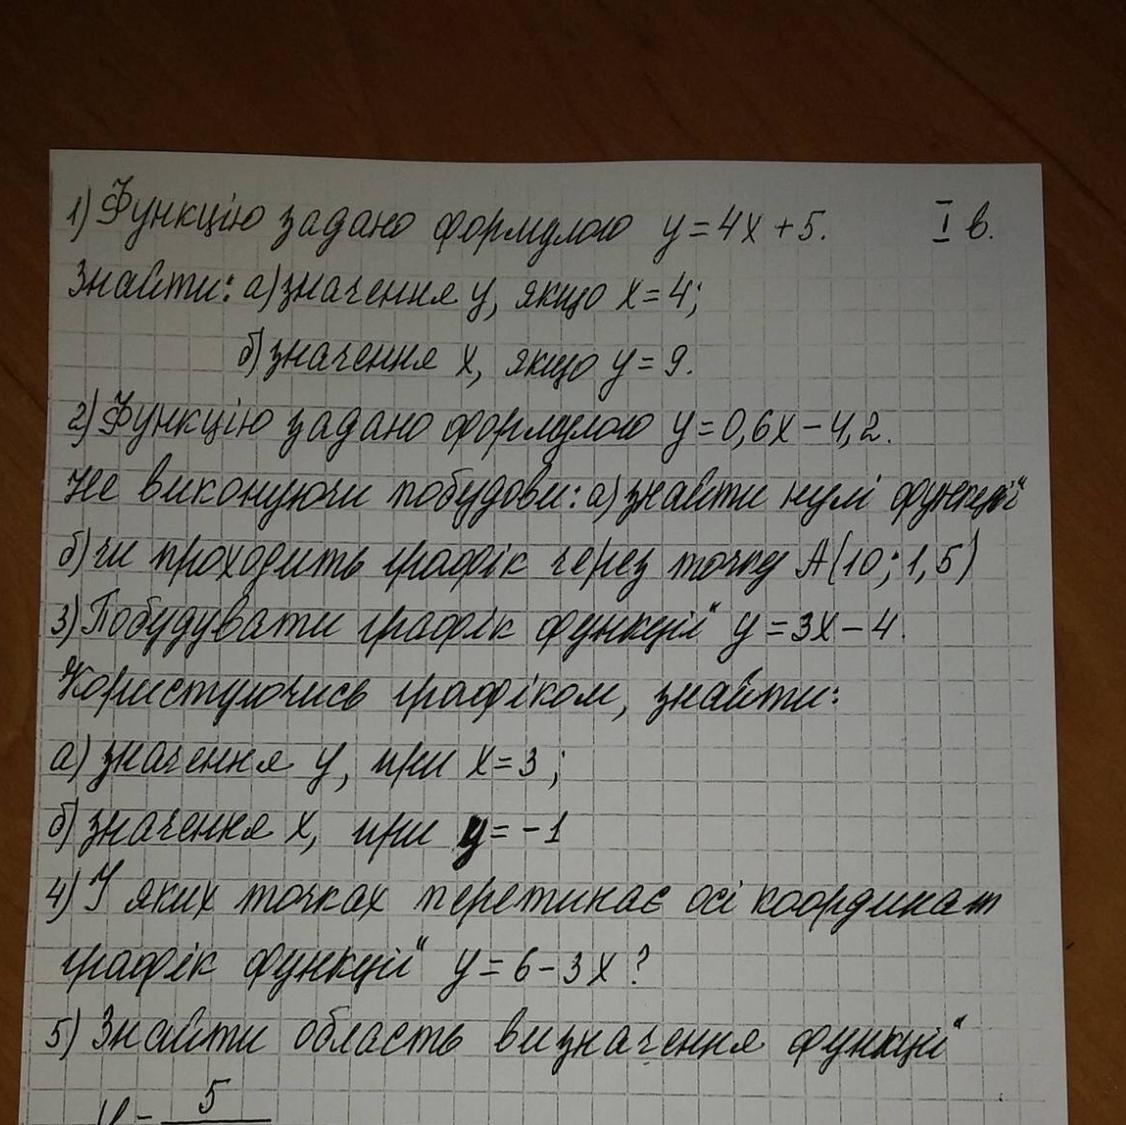 1) Функцію задано формулою y=4x+5. I в.
Знайти: а) значення y, якщо x=4;
б) значення x, якщо y=9.
2) Функцію задано формулою y=0,6x-4,2.
Не виконуючи побудови: а) знайти нулі функції
б) чи проходить графік через точку A(10; 1,5)
3) Побудувати графік функції y=3x-4.
Користуючись графіком, знайти:
а) значення y, при x=3;
б) значення x, при y=-1
4) У яких точках перетинає осі координат
графік функції y=6-3x?
5) Знайти область визначення функції
5